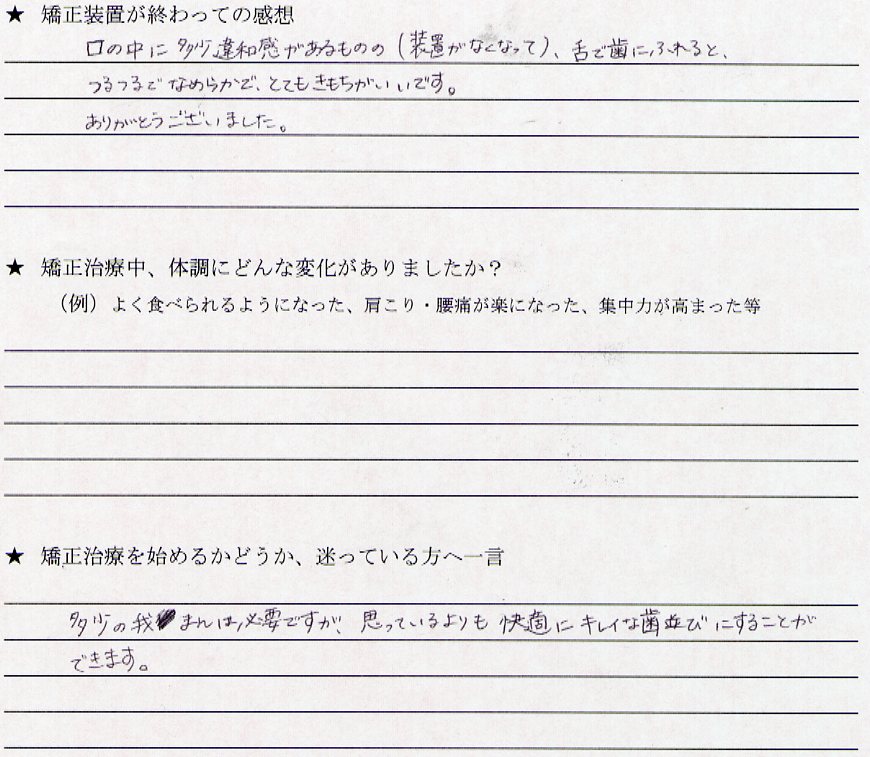 ★ 矯正装置が終わっての感想
口の中に多少違和感があるものの（装置がなくなって）、舌で歯にふれると、
つるつるでなめらかで、とてもきもちがいいです。
ありがとうございました。
★ 矯正治療中、体調にどんな変化がありましたか？
（例）よく食べられるようになった、肩こり・腰痛が楽になった、集中力が高まった等
★ 矯正治療を始めるかどうか、迷っている方へ一言
多少の我まんは必要ですが、思っているよりも快適にキレイな歯並びにすることが
できます。